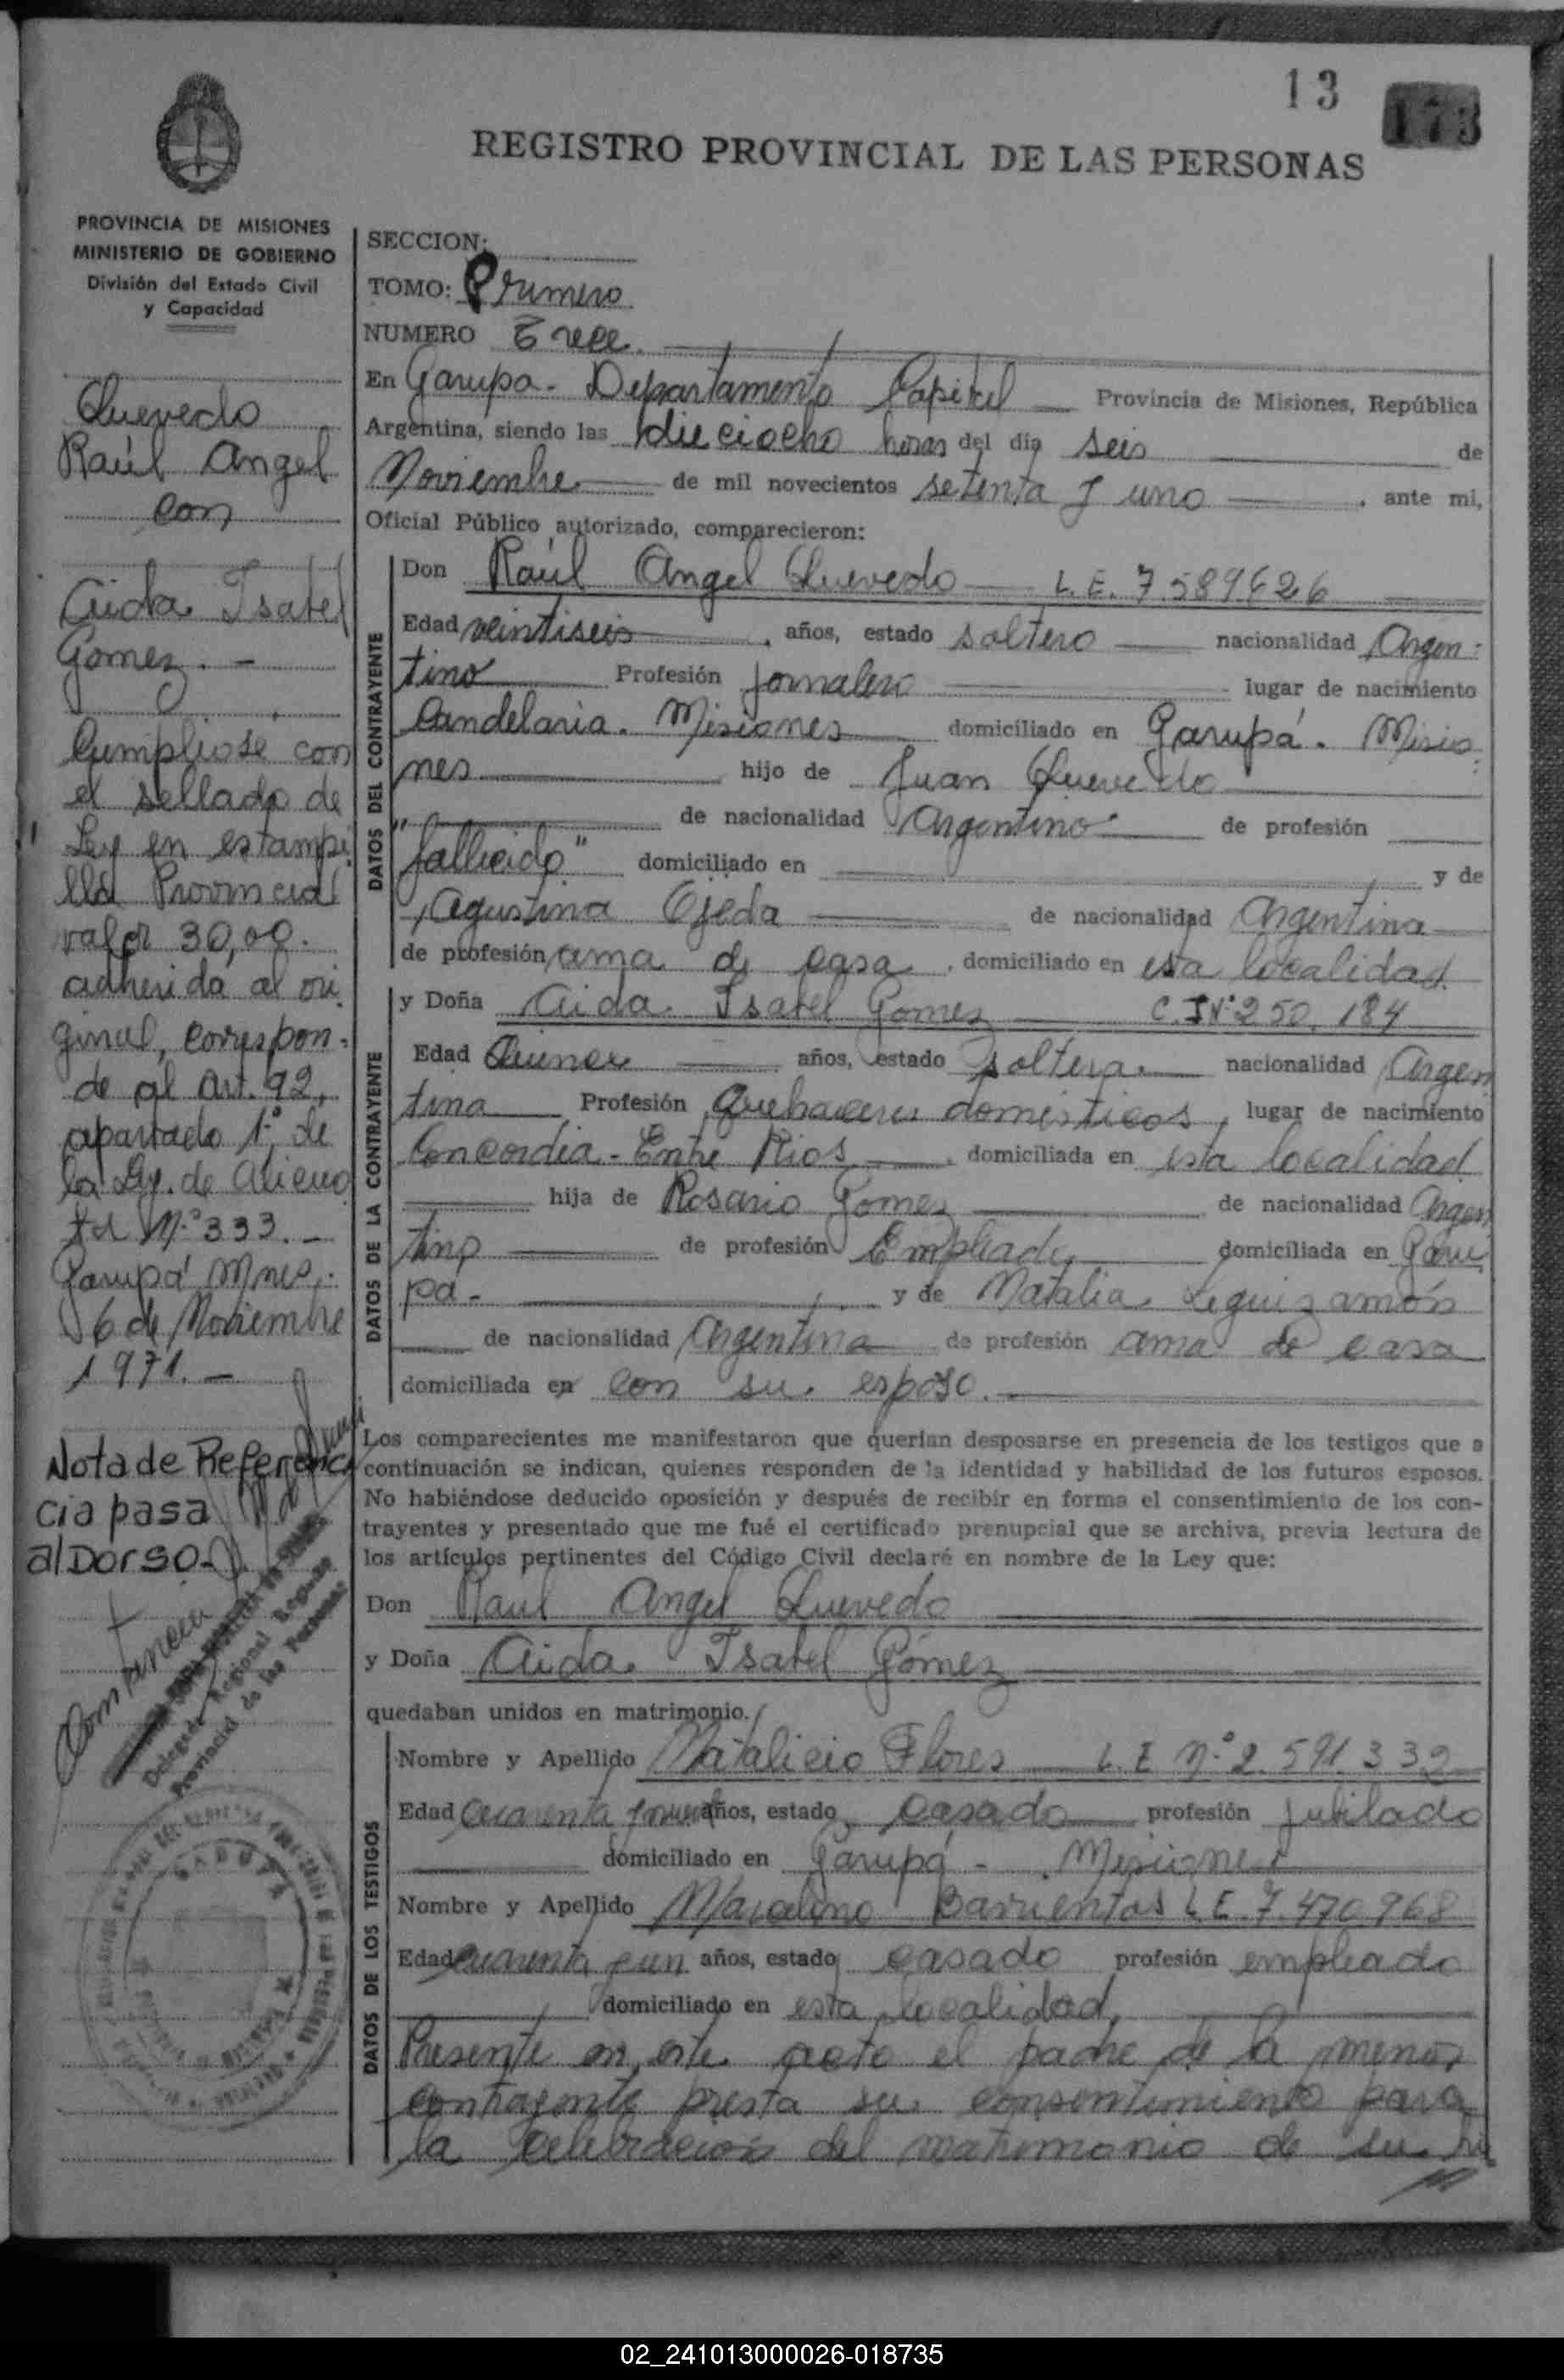 13
173
REGISTRO PROVINCIAL DE LAS PERSONAS
PROVINCIA DE MISIONES
MINISTERIO DE GOBIERNO
División del Estado Civil
y Capacidad
Quevedo
Raúl Angel
con
Aida Isabel
Gomez. -
Cumpliose con
el sellado de
Ley en estampi
lla Provincial
valor 30,00.
adherida al ori
ginal, correspon-
de al Art. 92,
apartado 1º, de
la Ley. de
Nº 333. -
Garupá Mnes.
6 de Noviembre
1971. -
Nota de Referen
cia pasa
al Dorso -
Delegado Regional Registro
Provincial de las Personas
SECCION:
TOMO: Primero
NUMERO Trece
En Garupa - Departamento Capital Provincia de Misiones, República
Argentina, siendo las dieciocho horas del día seis de
Noviembre de mil novecientos setenta y uno, ante mi,
Oficial Público autorizado, comparecieron:
DATOS DEL CONTRAYENTE
Don Raúl Angel Quevedo L. E. 7.589.626
Edad veintiseis, años, estado soltero nacionalidad Argen-
tino Profesión Jornalero lugar de nacimiento
Candelaria. Misiones domiciliado en Garupá. Misio-
nes hijo de Juan Quevedo
de nacionalidad Argentino de profesión
"fallecido" domiciliado en y de
Agustina Ojeda de nacionalidad Argentina
de profesión ama de casa, domiciliado en esta localidad.
DATOS DE LA CONTRAYENTE
y Doña Aida Isabel Gomez C. I Nº 250.184
Edad Quince años, estado soltera nacionalidad Argen
tina Profesión Quehaceres domésticos, lugar de nacimiento
Concordia - Entre Rios, domiciliada en esta localidad
hija de Rosario Gomez de nacionalidad Argen
tino de profesión Empleado domiciliada en Garu
pá - y de Natalia Leguizamón
de nacionalidad Argentina de profesión ama de casa
domiciliada en con su esposo.
Los comparecientes me manifestaron que querían desposarse en presencia de los testigos que a
continuación se indican, quienes responden de la identidad y habilidad de los futuros esposos.
No habiéndose deducido oposición y después de recibir en forma el consentimiento de los con-
trayentes y presentado que me fué el certificado prenupcial que se archiva, previa lectura de
los artículos pertinentes del Código Civil declaré en nombre de la Ley que:
Don Raul Angel Quevedo
y Doña Aida Isabel Gómez
quedaban unidos en matrimonio.
DATOS DE LOS TESTIGOS
Nombre y Apellido Natalicio Flores L. E Nº 2.591.332
Edad Cuarenta y años, estado casado profesión jubilado
domiciliado en Garupá - Misiones
Nombre y Apellido Barrientos L E. 7.470.968
Edad cuarenta y un años, estado casado profesión empleado
domiciliado en esta localidad,
Presente en este acto el padre de la menor
contrayente presta su consentimiento para
la celebración del matrimonio de su hi
02_241013000026-018735